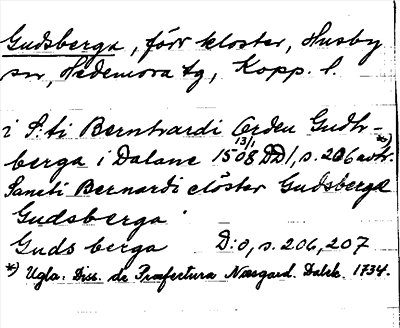 Gudsberga, förr kloster, Husby
sn, Hedemora tg, Kopp. l.
i S:ti Bernhardi Orden Gudh-
berga i Dalane 13/1 1508 DD1, s. 206 avtr. *)
Sancti Bernardi closter Gudsberga
Gudsberga
Guds berga D:o, s. 206, 207
*) Ugla. Diss. de Præfectura Næsgard. Dalek. 1734.